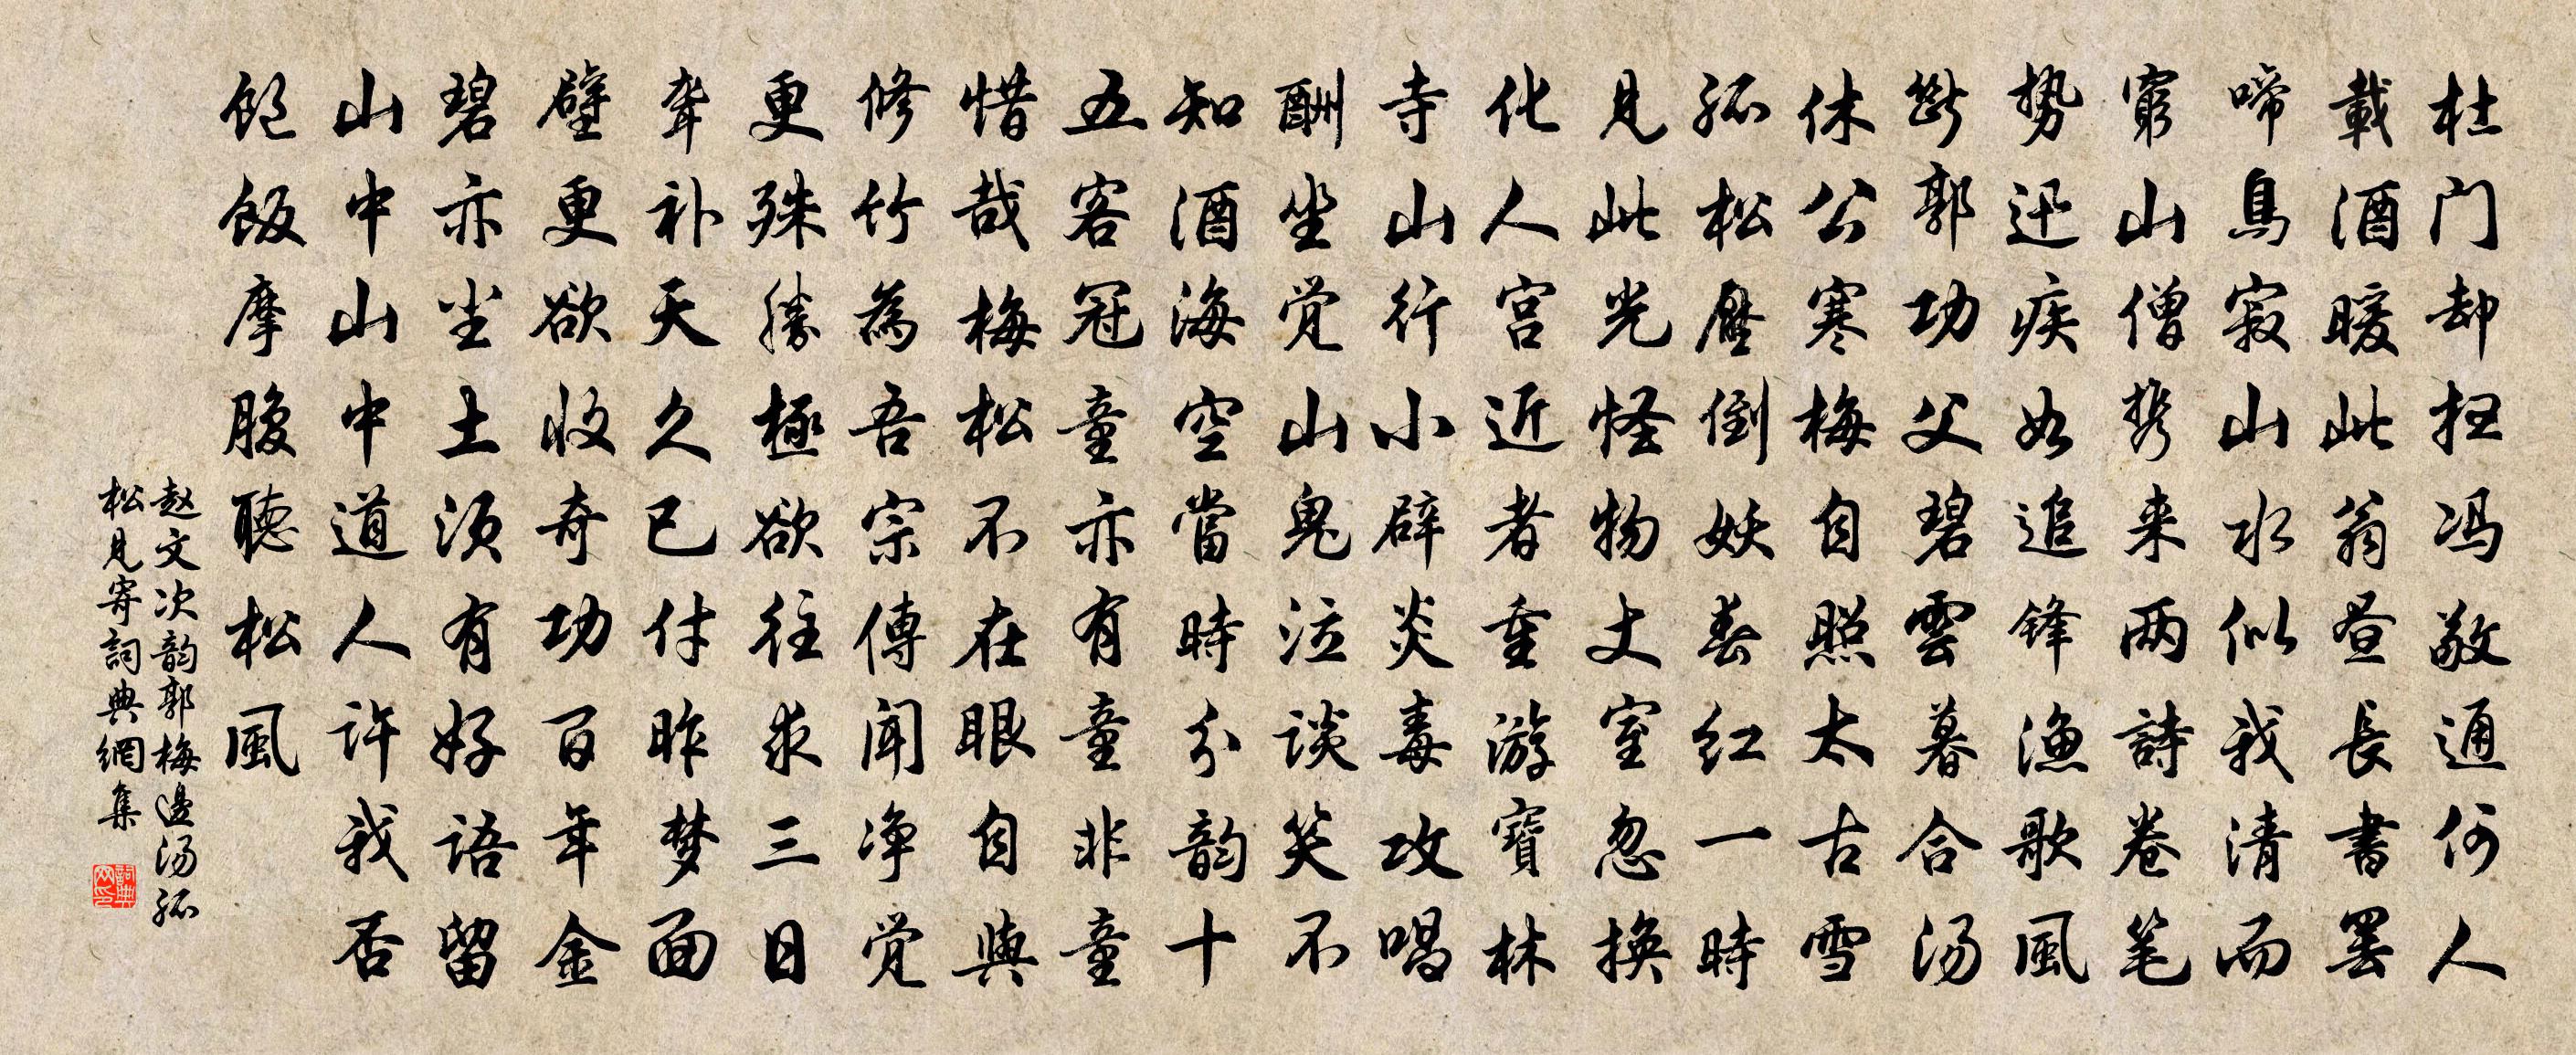 杜门却扫冯敬通何人
載酒暖此翁昼長書罢
啼鳥寂山水似我清而
窮山僧携来两詩卷笔
势迅疾如追锋渔歌風
断郭功父碧雲暮合汤
休公寒梅自照太古雪
孤松壓倒妖春红一時
見此光怪物丈室忽換
化人宫近者重游寶林
寺山行小辟炎毒攻唱
酬坐觉山鬼泣谈笑不
知酒海空當時分韵十
五客冠童亦有童非童
惜哉梅松不在眼自與
修竹為吾宗傳闻净觉
更殊勝極欲往求三日
聋补天久已付昨梦面
壁更欲收奇功百年金
碧亦尘土须有好語留
山中山中道人许我否
饱饭摩腹聽松風
赵文次韵郭梅邊汤孤
松見寄詞典網集
詞典网印